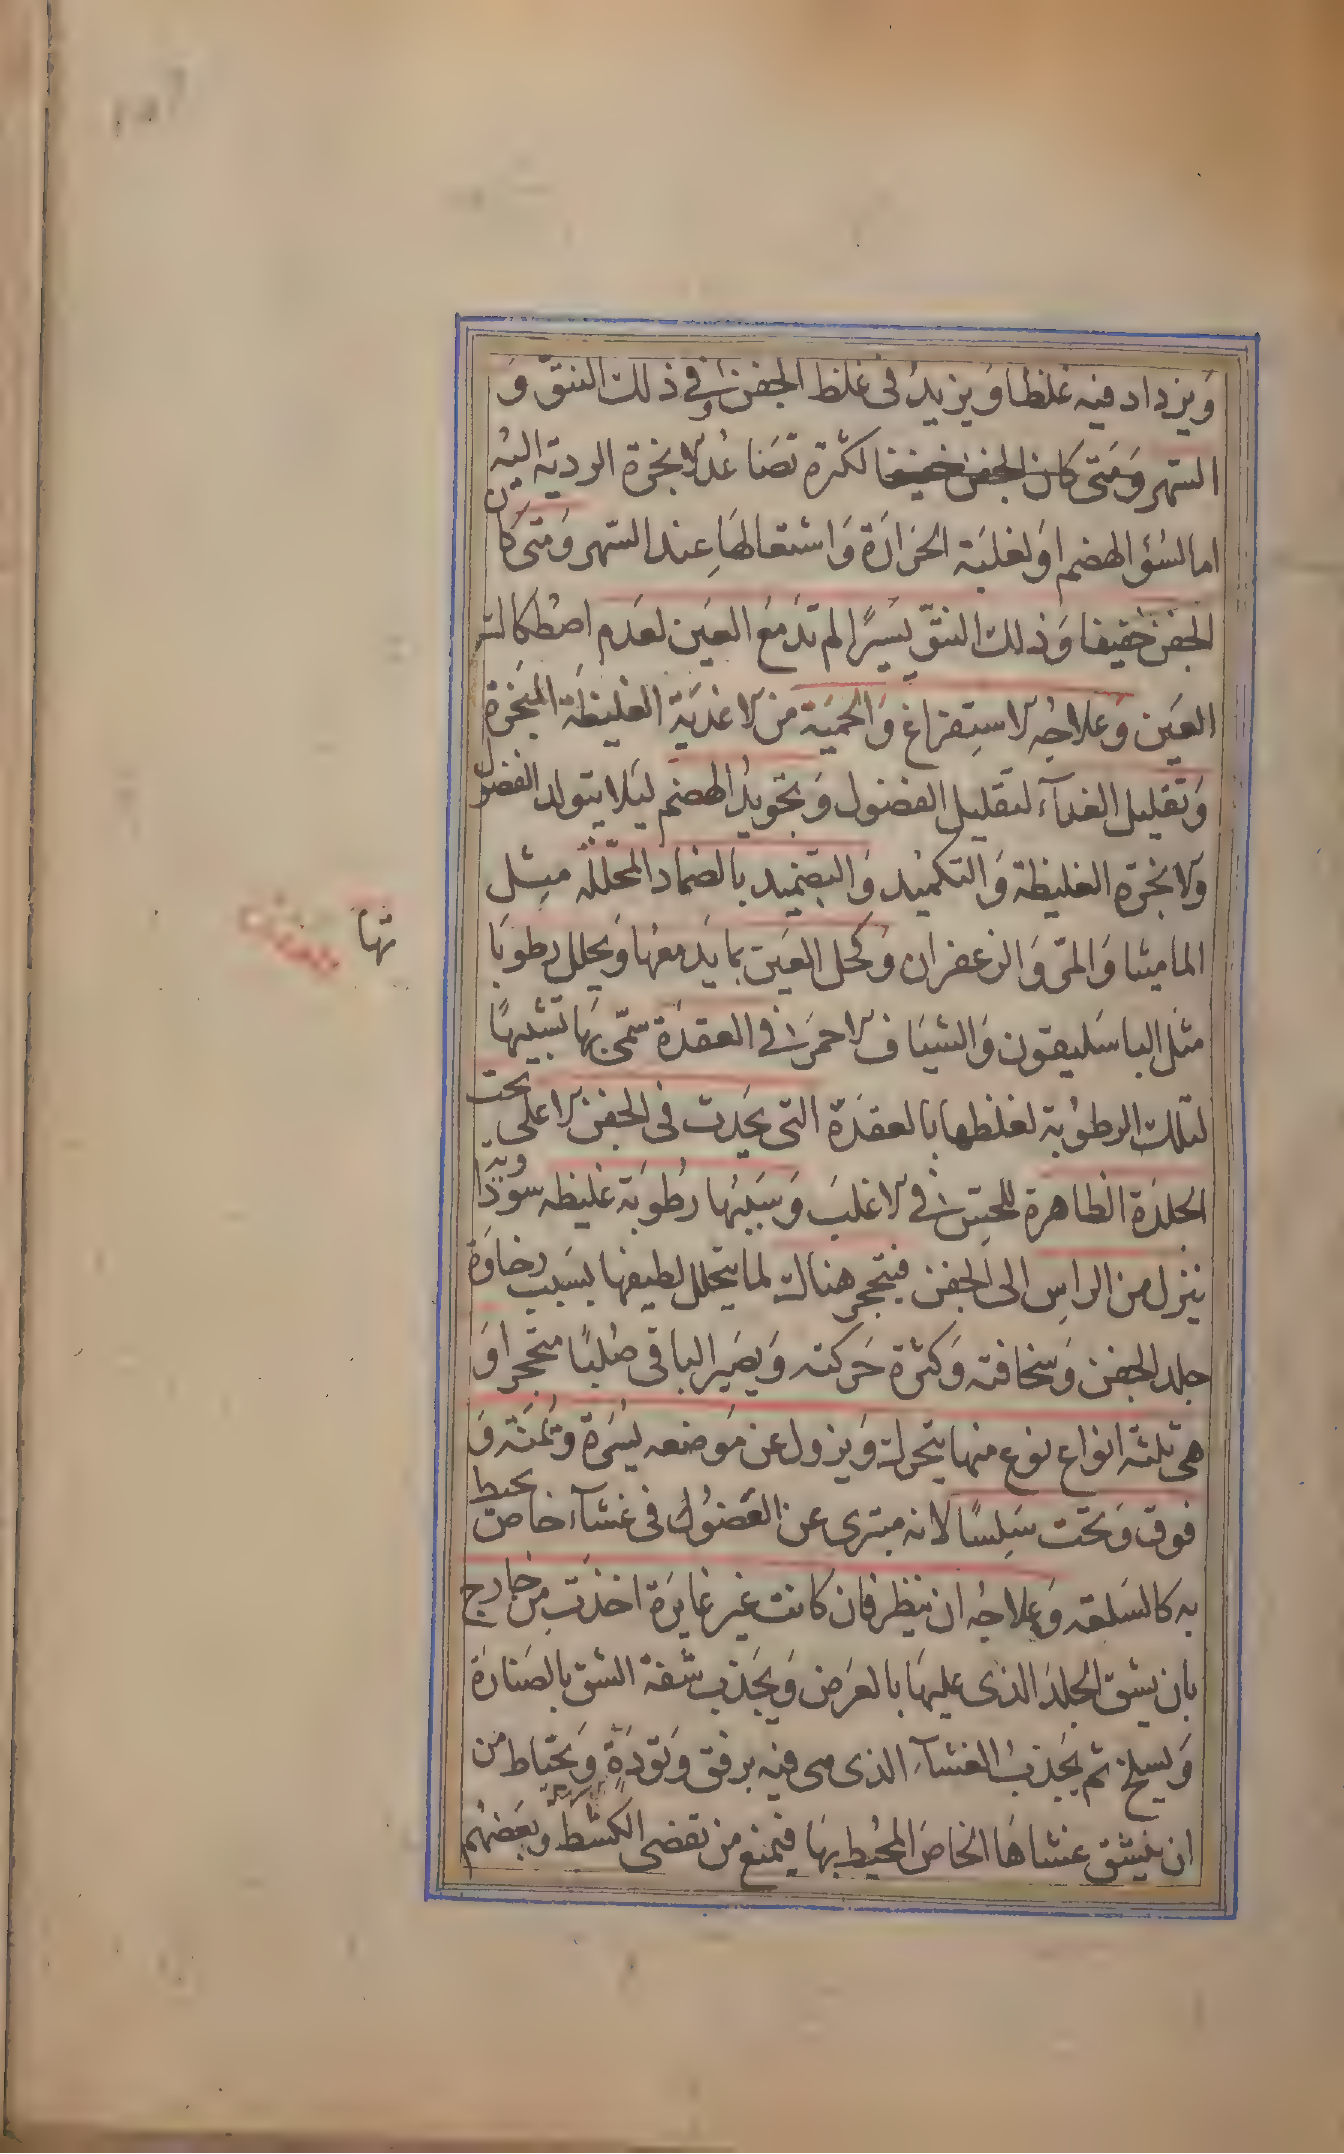 ويزداد فيه غلظا ويزيد في غلظ الجفن وفي ذلك النتو و
السهر ومتى كان الجفن خفيفا لكثرة تصاعد الابخرة الردية اليه
اما لسؤ الهضم او لغلبة الحرارة واشتعالها عند السهر ومتى كان
الجفن خفيفا وذلك النتو يسيرا لم تدمع العين لعدم اصطكاك
العين وعلاجه الاستفراغ والحمية من الاغذية الغليظة المبخرة
وتقليل الغدآء لتقليل الفضول وتجويد الهضم ليلا يتولد الفضول
والابخرة الغليظة والتكميد والتضميد بالضماد المحللة مثل
الماميثا والمر والزعفران وكحل العين بما يدمعها ويحلل رطوبا
تها
مثل الباسليقون والشياف الاحمر في العقدة سمى بها تشبيها
لتلك الرطوبة لغلظها بالعقدة التي يحدث في الجفن الاعلى تحت
الجلدة الظاهرة للحس في الاغلب وسببها رطوبة غليظه سوداوية
ينزل من الراس الى الجفن فيتحجر هناك لما يتحلل لطيفها بسبب رخاوة
جلد الجفن وسخافته وكثرة حركته ويصير الباقي صلبا متحجرا و
هي ثلثة انواع نوع منها يتحرك ويزول عن موضعه يسرة ويمنة و
فوق وتحت سلسا لانه متبرى عن العضو في غشآء خاص يحيط
به كالسلعه وعلاجه ان ينظر فان كانت غير غايرة اخذت من خارج
بان يشق الجلد الذي عليها بالعرض ويجذب شفة الشق بالصنارة
ويسلخ ثم يجذب الغشآء الذى هى فيه برفق وتودة ويحتاط من
ان ينشق غشاها الخاص المحيط بها فيمنع من تقصى الكشط وبعضهم